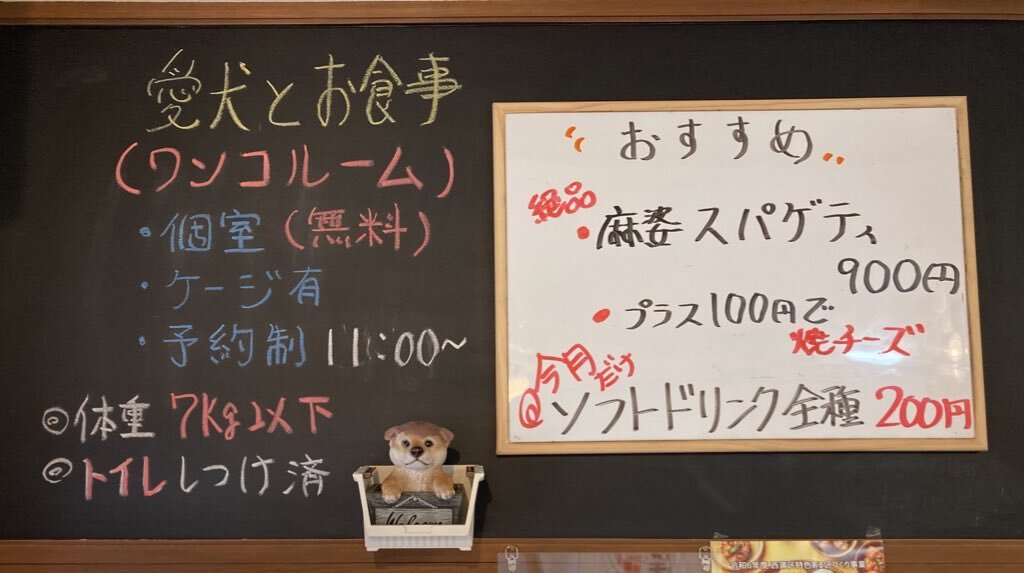 愛犬とお食事
(ワンコルーム)
・個室(無料)
・ケージ有
・予約制 11:00~
◎体重 7kg以下
◎トイレしつけ済
Welcome
おすすめ
絶品
・麻婆スパゲティ
900円
・プラス100円で
焼チーズ
今月だけ
@ソフトドリンク全種 200円
令和6年度・西蒲区特色ある区づくり事業